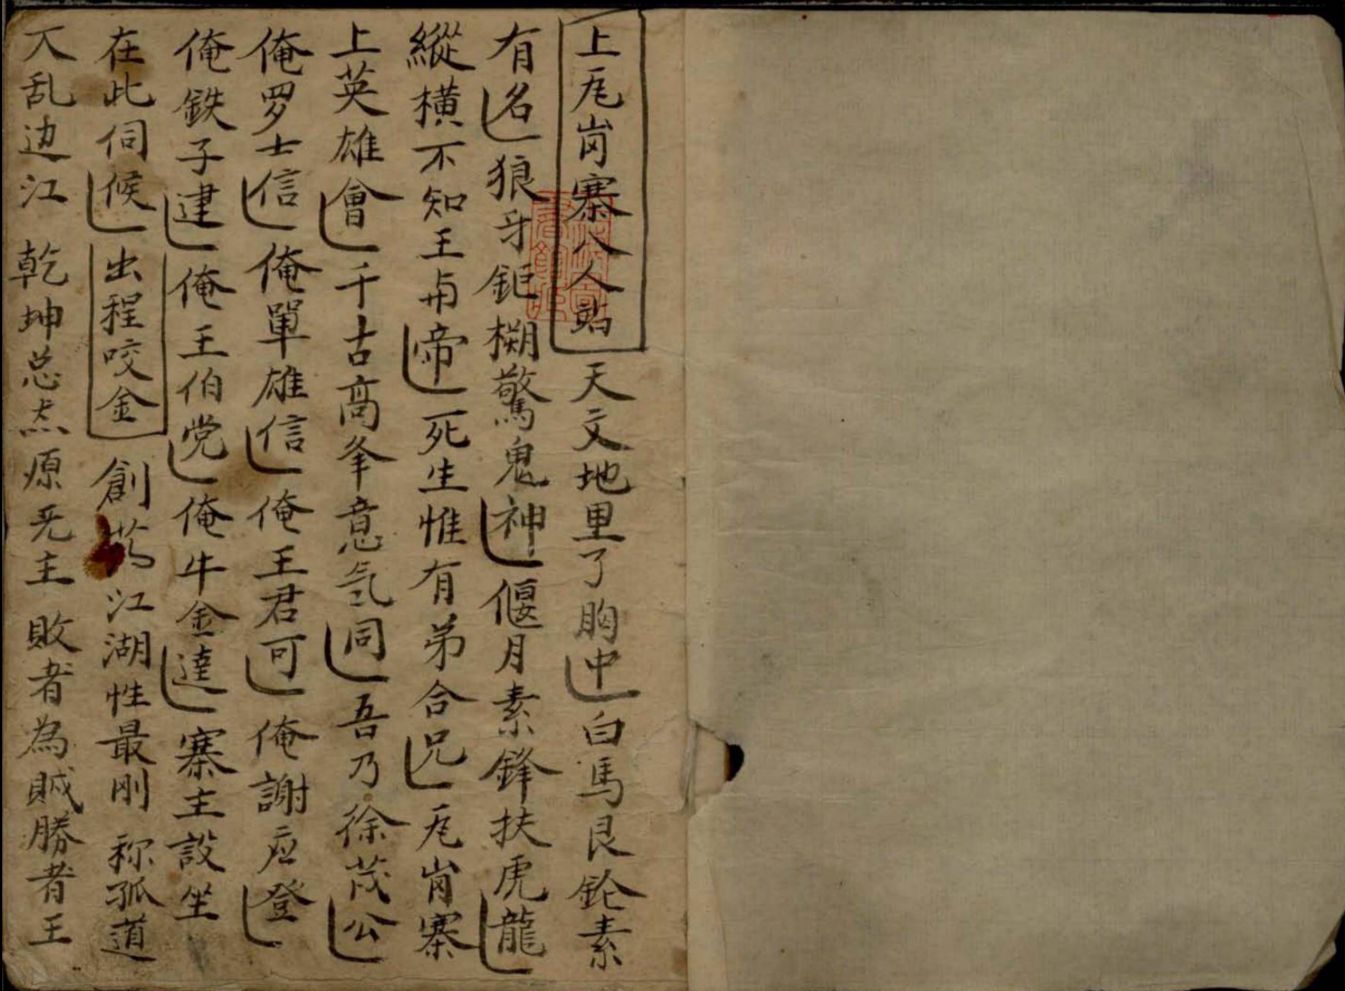 上尾岗寨八人貼 天文地里了胸中 白馬艮鈊素
有名 狼牙鉅槊驚鬼神 偃月素鋒扶虎龍
縱橫不知王与帝 死生惟有弟合兄 尾岗寨
上英雄會 千古高峯意氣同 吾乃徐茂公
俺罗士信 俺單雄信 俺王君可 俺謝应登
俺鉄子建 俺王伯党 俺牛金達 寨主設坐
在此伺候 出程咬金 創蕩江湖性最刚 称孤道
人乱边江 乾坤总点原无主 敗者為贼勝者王